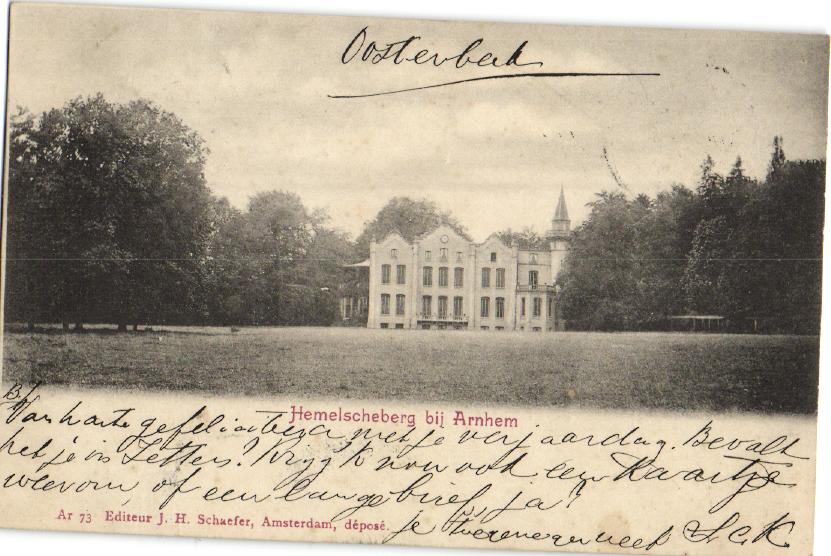 Oosterbeek
B/
Hemelscheberg bij Arnhem
Van harte gefeliciteerd met je verjaardag. Bevalt
het je in Letters? Krijg ik nou ook een kaartje
weerom, of een lange brief, ja?
Ar 73 Editeur J. H. Schaefer, Amsterdam, déposé.
je